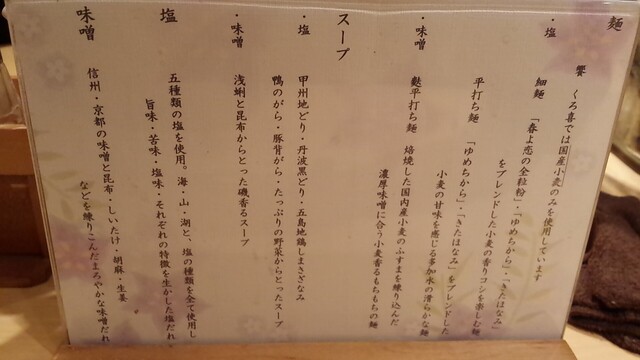 麺
饗 くろ喜では国産小麦のみを使用しています
・塩
細麺 「春よ恋の全粒粉」・「ゆめちから」・「きたほなみ」
をブレンドした小麦の香りコシを楽しむ麺
平打ち麺 「ゆめちから」・「きたほなみ」をブレンドした
小麦の甘味を感じる多加水の滑らかな麺
・味噌
麩平打ち麺 焙焼した国内産小麦のふすまを練り込んだ
濃厚味噌に合う小麦香るもちもちの麺
スープ
・塩
甲州地どり・丹波黒どり・五島地鶏しまさざなみ
鴨のがら・豚背がら・たっぷりの野菜からとったスープ
・味噌
浅蜊と昆布からとった磯香るスープ
塩
五種類の塩を使用。海・山・湖と、塩の種類を全て使用し
旨味・苦味・塩味・それぞれの特徴を生かした塩だれ。
味噌
信州・京都の味噌と昆布・しいたけ・胡麻・生姜
などを練りこんだまろやかな味噌だれ